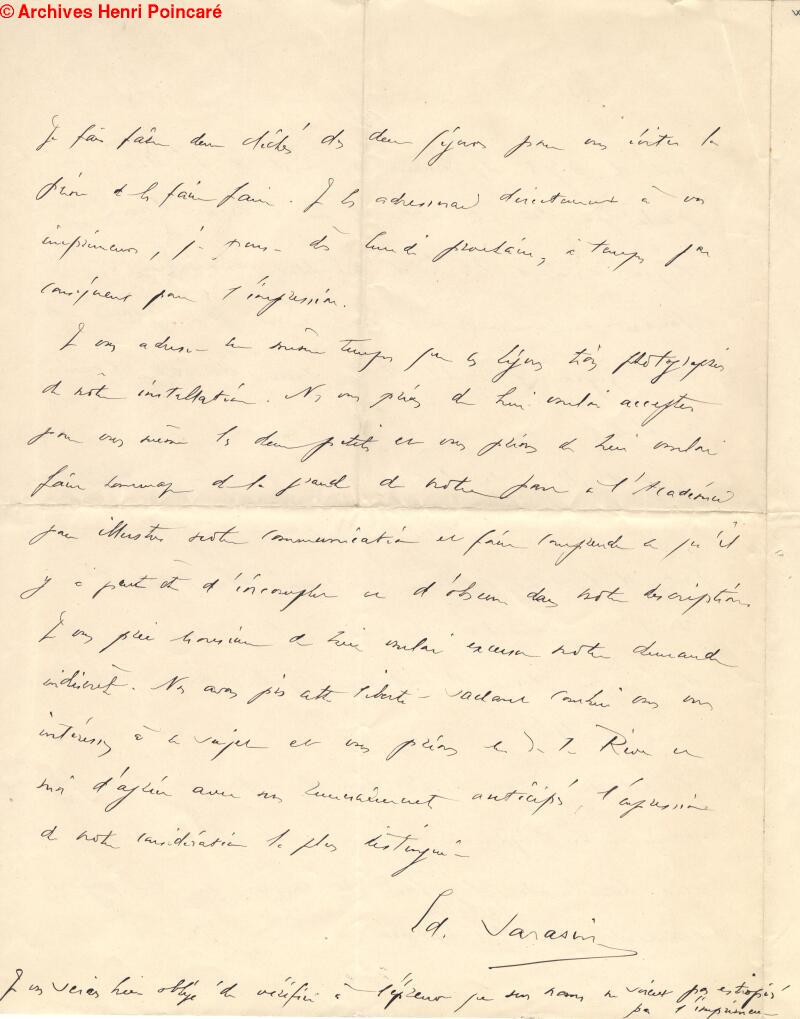 © Archives Henri Poincaré
Je fais faire deux clichés des deux figures pour vous éviter la
peine de les faire faire. Je les adresserai directement à vos
imprimeurs, je pense dès lundi prochain, à temps par
conséquent pour l'impression.
Je vous adresse en même temps que ces lignes trois photographies
de nôtre installation. Nous vous prions de bien vouloir accepter
pour vous même les deux petites et vous prions de bien vouloir
faire hommage de la grande de notre part à l'Académie
pour illustrer notre communication et faire comprendre ce qu'il
y a peut être d'incomplet ou d'obscur dans notre description
Je vous prie Monsieur de bien vouloir excuser notre demande
indiscrète. Nous avons pris cette liberté sachant combien vous vous
intéressez à ce sujet et vous prions M. de la Rive et
moi d'agréer avec nos remerciements anticipés, l'expression
de nôtre considération la plus distinguée
Ed. Sarasin
Je vous serais bien obligé de vérifier à l'épreuve que nos noms ne soient pas estropiés
par l'imprimeur